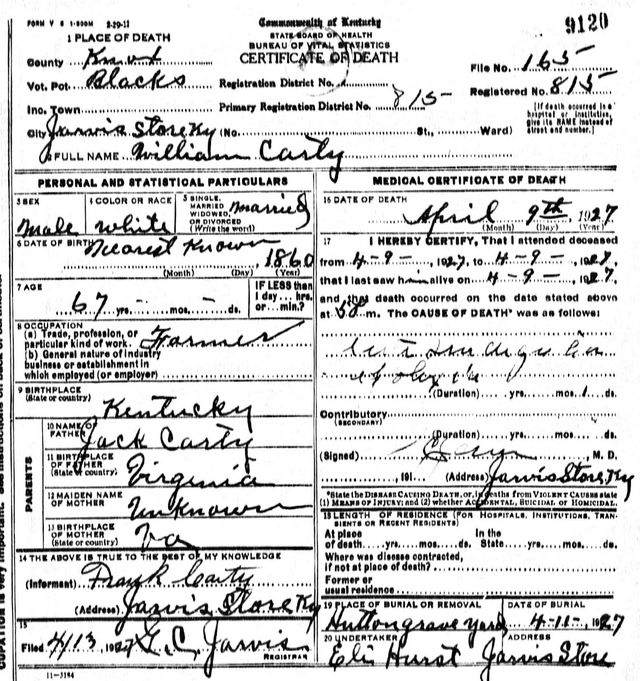 FORM V S 1-500M 2-29-11
Commonwealth of Kentucky
STATE BOARD OF HEALTH
BUREAU OF VITAL STATISTICS
CERTIFICATE OF DEATH
9120
1 PLACE OF DEATH
County Knox
File No. 165
Vot. Pct. Blacks
Registration District No.
Registered No. 815
Inc. Town
Primary Registration District No. 815
[If death occurred in a hospital or institution, give its NAME instead of street and number.]
City Jarvis Store Ky (No. St., Ward)
2 FULL NAME William Carty
PERSONAL AND STATISTICAL PARTICULARS
3 SEX Male
4 COLOR OR RACE White
5 SINGLE, MARRIED, WIDOWED, OR DIVORCED (Write the word) Married
6 DATE OF BIRTH Nearest Known 1860
(Month) (Day) (Year)
7 AGE
67 yrs. - mos. - ds.
IF LESS than 1 day... hrs. or... min.?
8 OCCUPATION
(a) Trade, profession, or particular kind of work. Farmer
(b) General nature of industry business or establishment in which employed (or employer)
9 BIRTHPLACE
(State or country) Kentucky
PARENTS
10 NAME OF FATHER Jack Carty
11 BIRTHPLACE OF FATHER (State or country) Virginia
12 MAIDEN NAME OF MOTHER Unknown
13 BIRTHPLACE OF MOTHER (State or country) Va
14 THE ABOVE IS TRUE TO THE BEST OF MY KNOWLEDGE
(Informant) Frank Carty
(Address) Jarvis Store Ky
15
Filed 4/13 1927 G. C. Jarvis
REGISTRAR
11-3184
MEDICAL CERTIFICATE OF DEATH
16 DATE OF DEATH
April 9th, 1927
(Month) (Day) (Year)
17 I HEREBY CERTIFY, That I attended deceased
from 4-9-, 1927, to 4-9-, 1927,
that I last saw him alive on 4-9-, 1927,
and that death occurred on the date stated above
at m. The CAUSE OF DEATH* was as follows:
(Duration) yrs. mos. ds.
Contributory
(SECONDARY)
(Duration) yrs. mos. ds.
(Signed) M. D.
191 (Address) Jarvis Store, Ky
*State the DISEASE CAUSING DEATH, or, in deaths from VIOLENT CAUSES state
(1) MEANS OF INJURY; and (2) whether ACCIDENTAL, SUICIDAL OR HOMICIDAL.
18 LENGTH OF RESIDENCE (FOR HOSPITALS, INSTITUTIONS, TRANSIENTS OR RECENT RESIDENTS)
At place of death yrs. mos. ds. In the State yrs. mos. ds.
Where was disease contracted, if not at place of death?
Former or usual residence
19 PLACE OF BURIAL OR REMOVAL Hutton graveyard
DATE OF BURIAL 4-11-, 1927
20 UNDERTAKER Eli Hurst
ADDRESS Jarvis Store